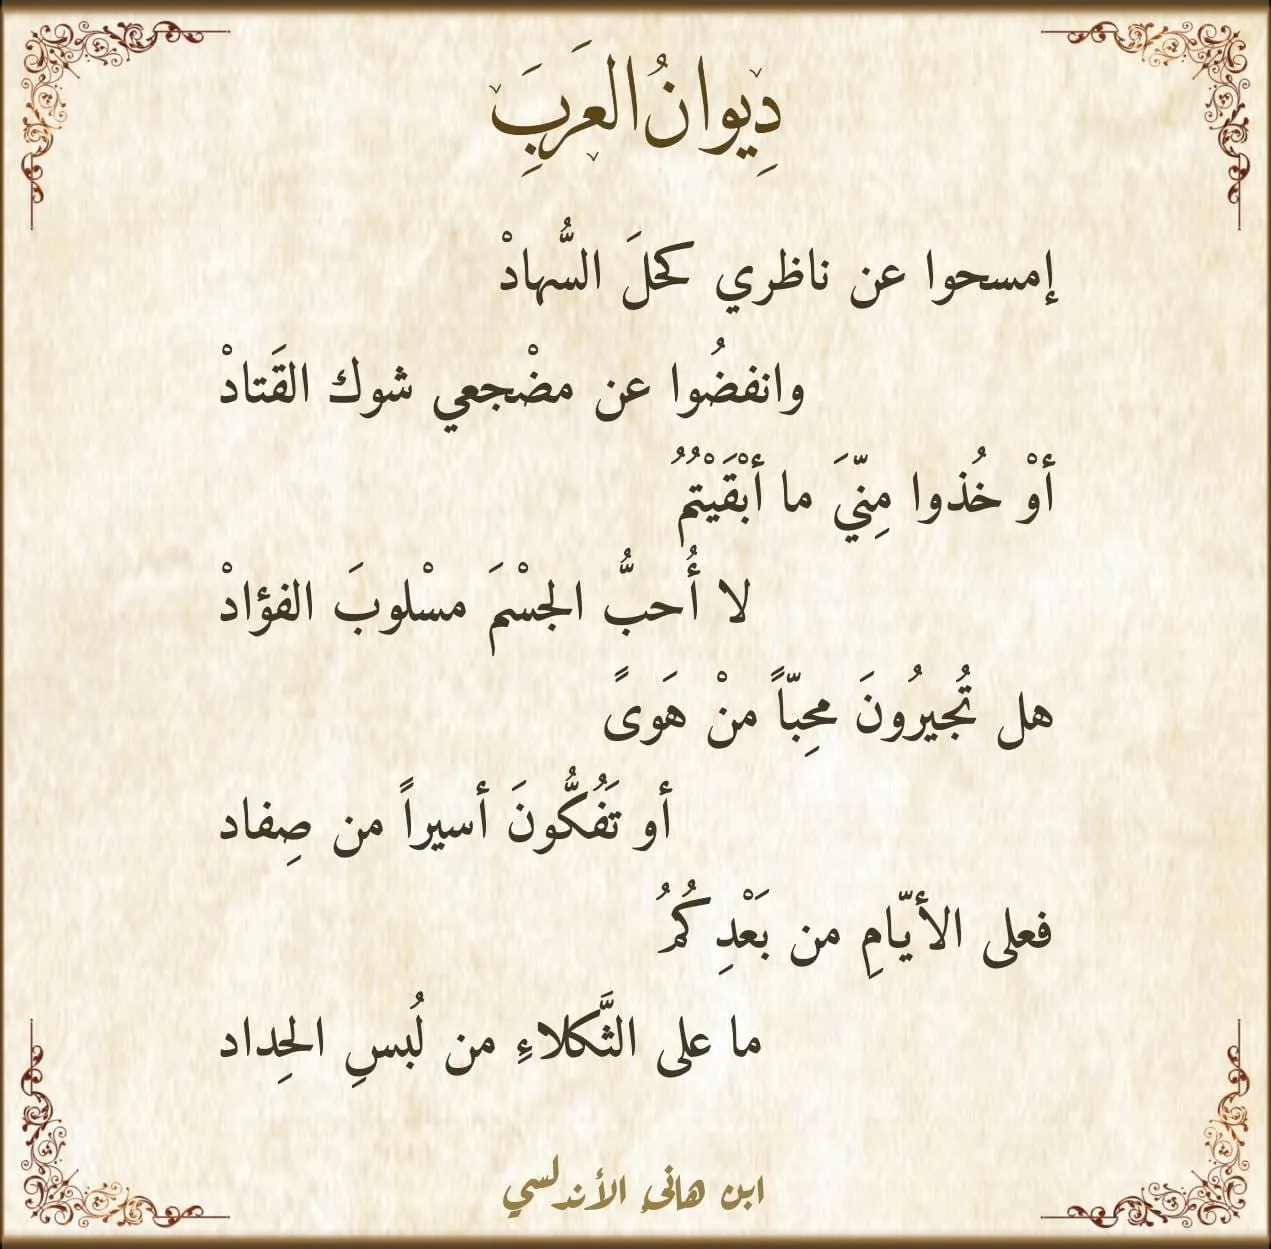 دِيوانُ العَرَبِ
إمسحوا عن ناظري كحلَ السُّهادْ
وانفضُوا عن مضْجعي شوك القَتادْ
أوْ خُذوا مِنّيَ ما أبْقَيْتُمُ
لا أُحبُّ الجسْمَ مسْلوبَ الفؤادْ
هل تُجيرُونَ محِبّاً منْ هَوىً
أو تَفُكُّونَ أسيراً من صِفاد
فعلى الأيّامِ من بَعْدِكُمُ
ما على الثَّكلاءِ من لُبسِ الحِداد
ابن هانئ الأندلسي